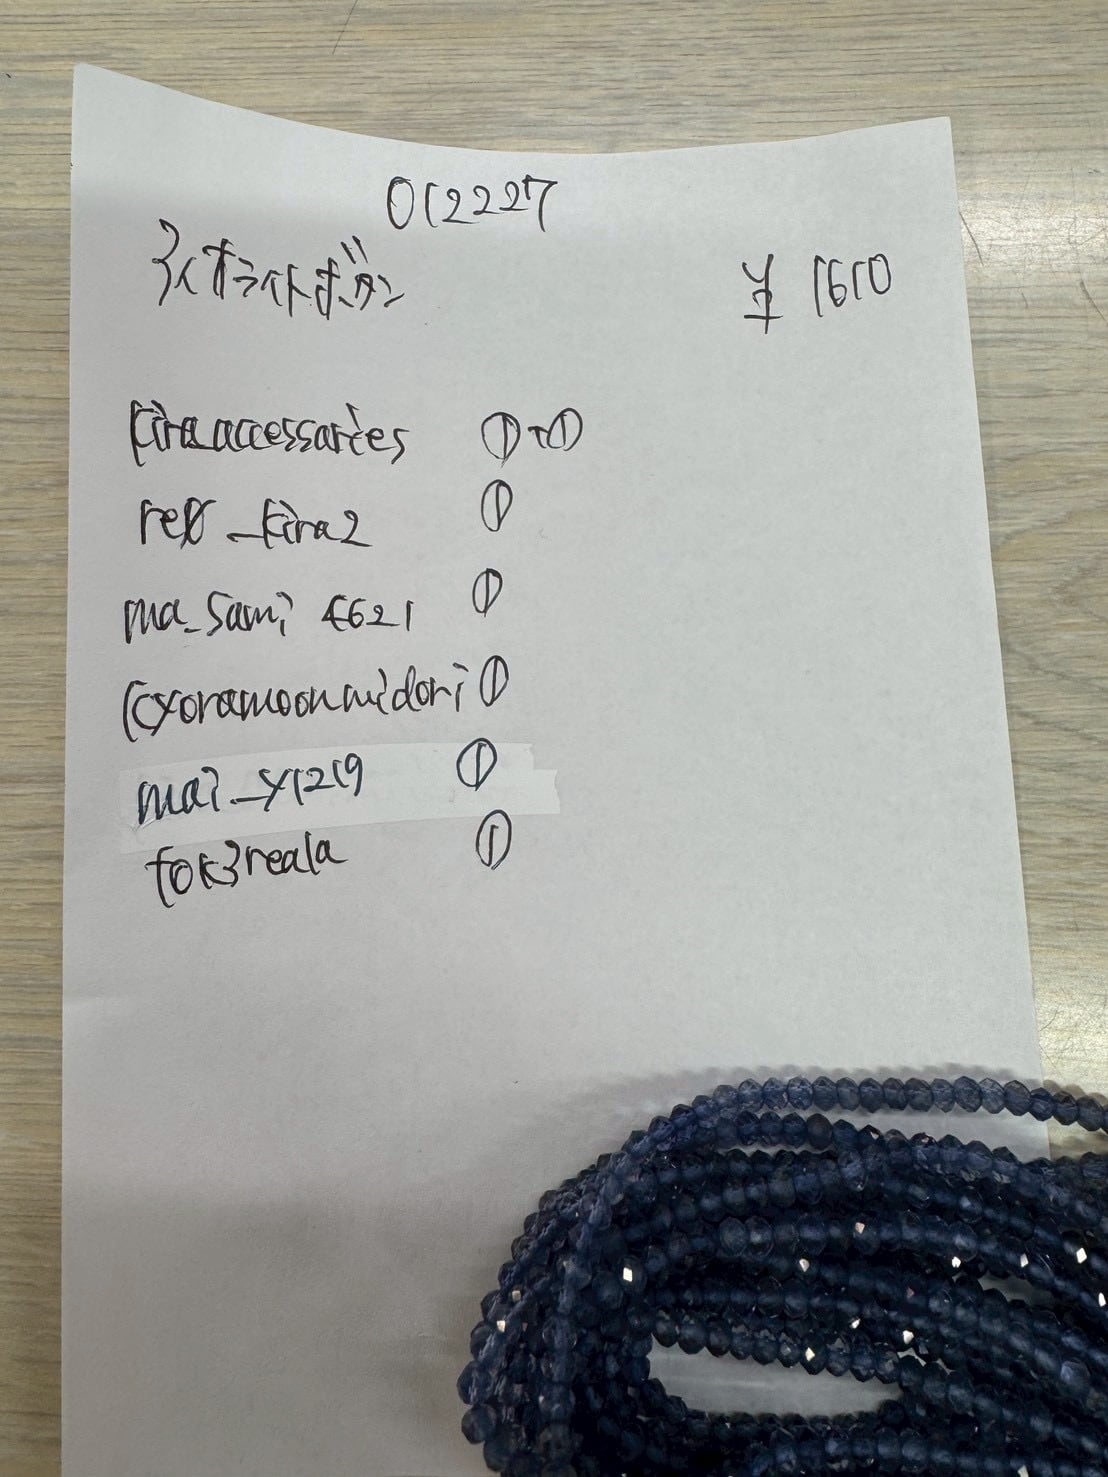 012227
アイオライトボタン
¥ 1610
kira_accessaries ①+①
re8_kira2 ①
ma_sami 4621 ①
①
mai_y1219 ①
①